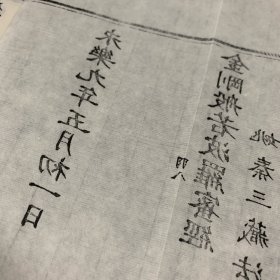 永樂九年五月初一日
金剛般若波羅蜜經
羽八
姚秦三藏法